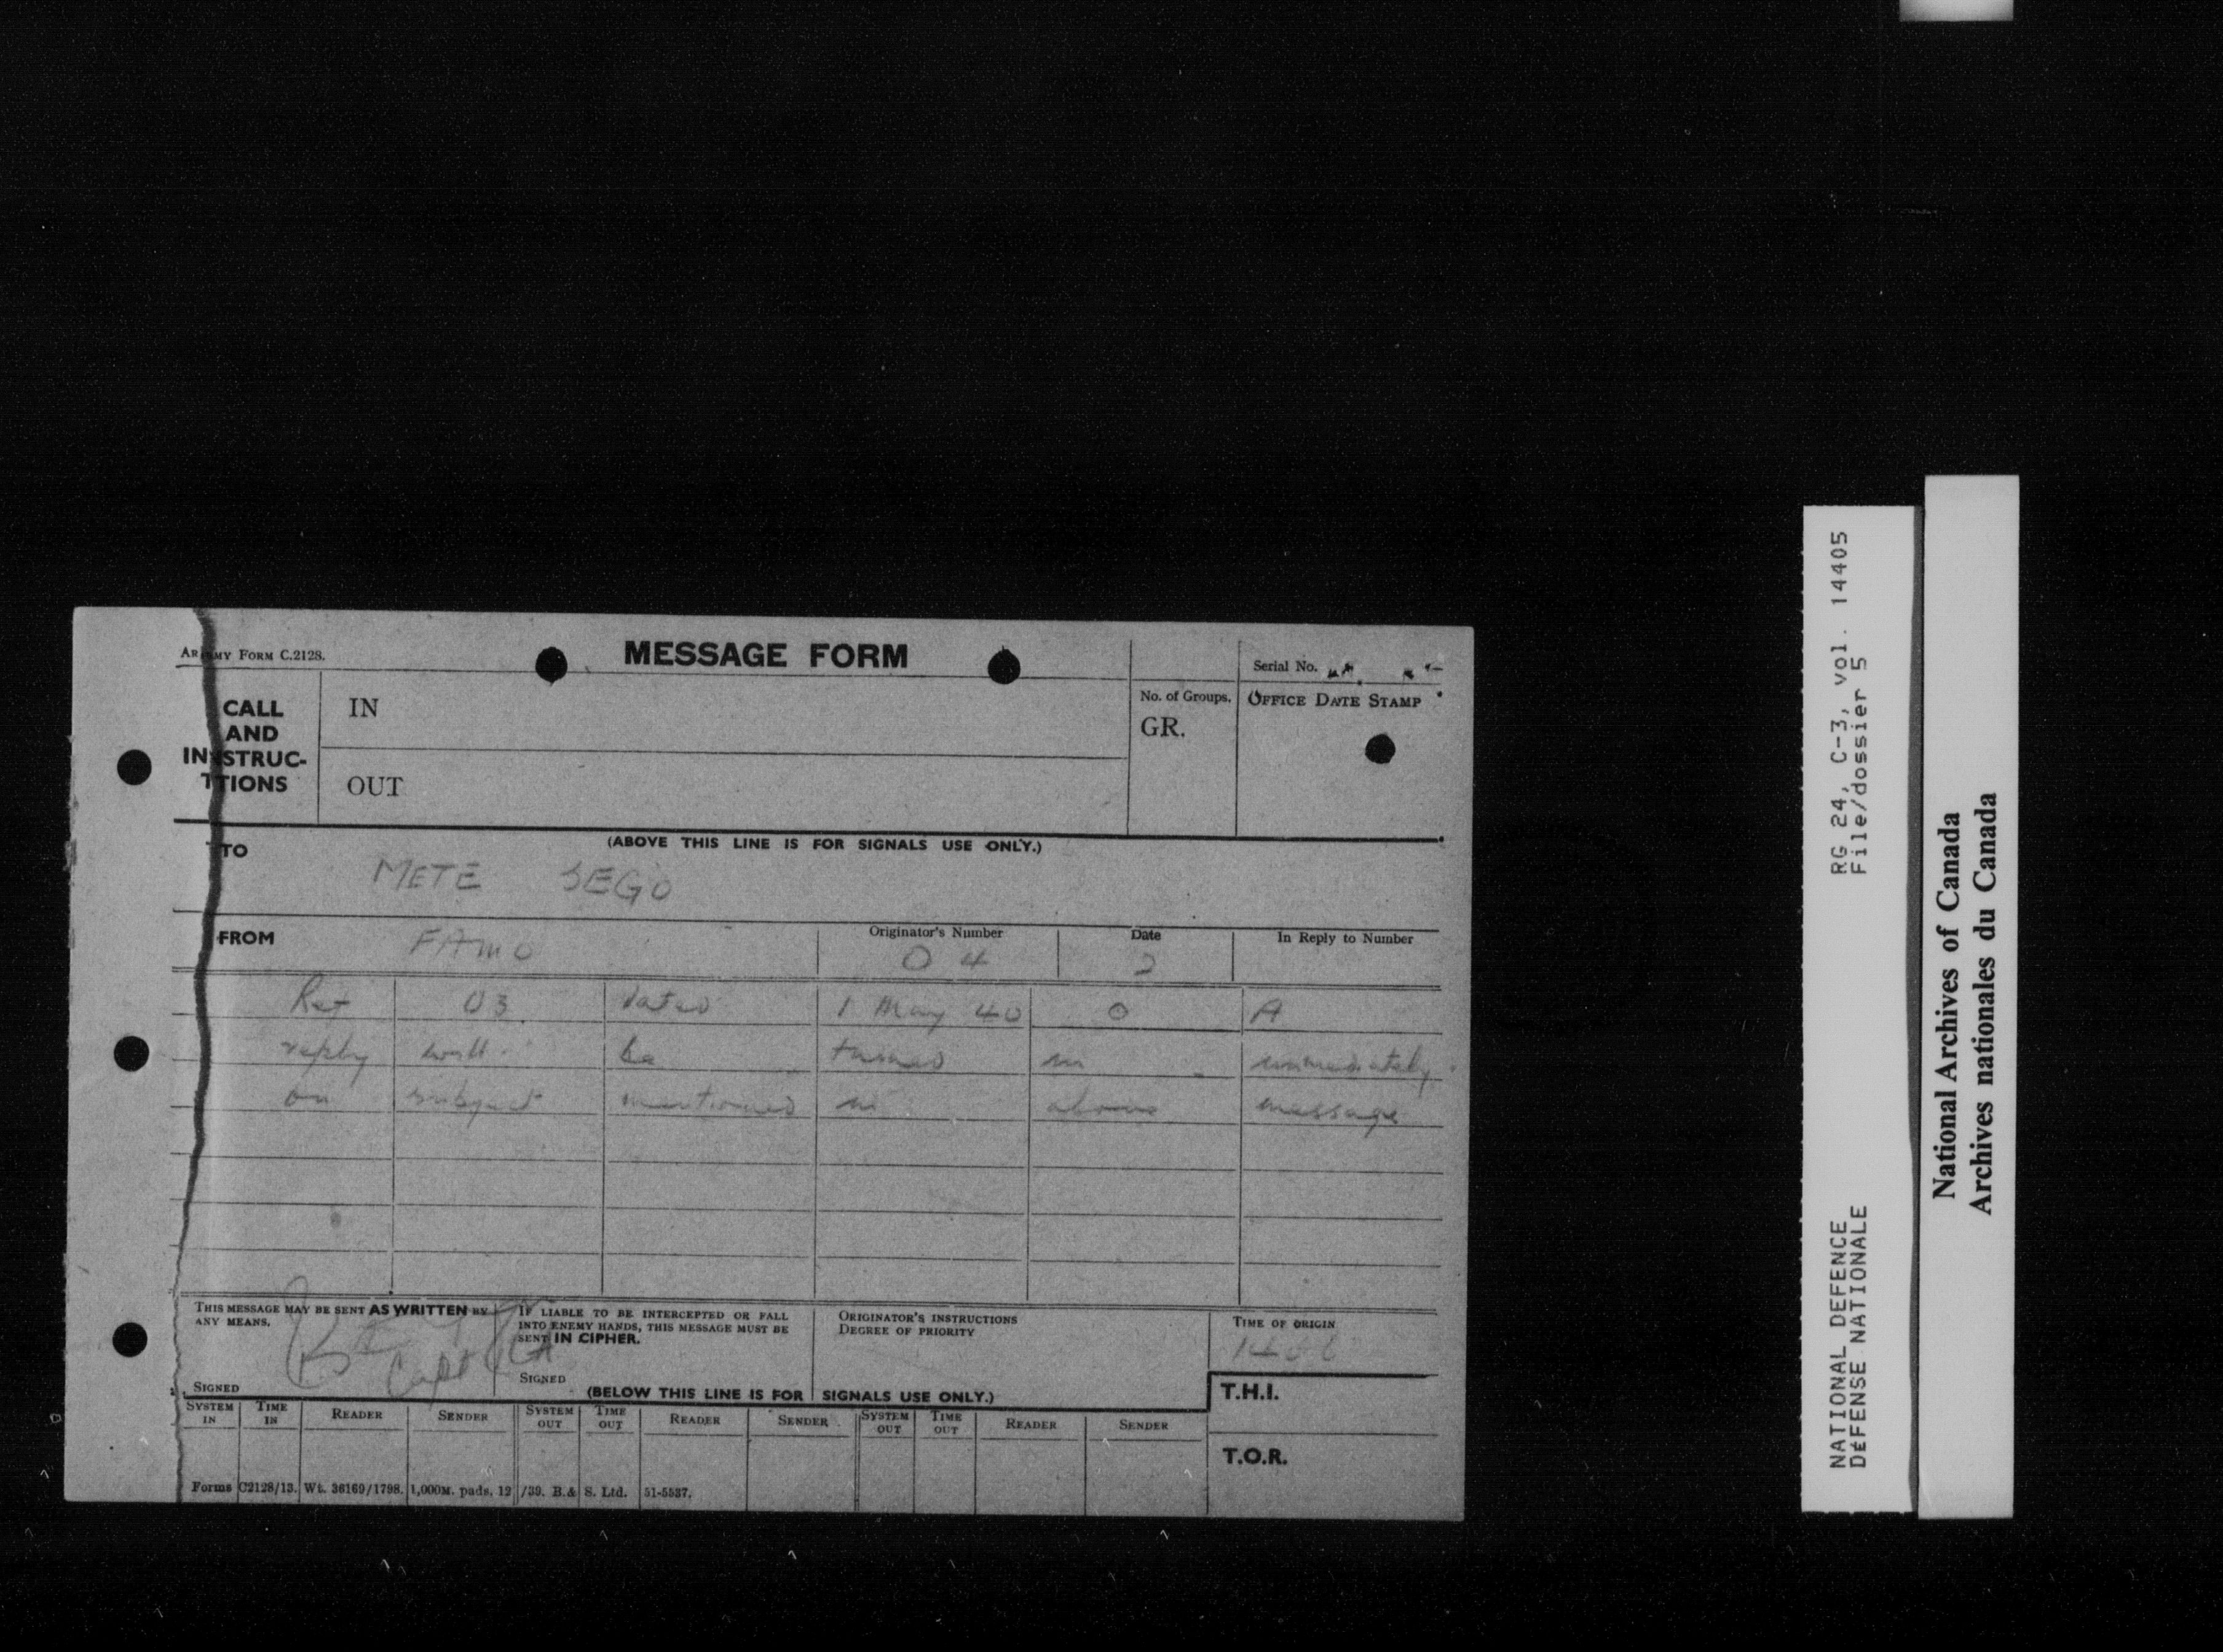 ARMY FORM C.2128.
MESSAGE FORM
Serial No.
CALL AND INSTRUC-TIONS
IN
OUT
No. of Groups.
GR.
OFFICE DATE STAMP
(ABOVE THIS LINE IS FOR SIGNALS USE ONLY.)
TO
METE SEGO
FROM
FAMO
Originator's Number
O 4
Date
2
In Reply to Number
Ref O3 dated 1 May 40 O A
reply will be turned in immediately
on subject mentioned in above message
THIS MESSAGE MAY BE SENT AS WRITTEN BY
ANY MEANS.
Capt
SIGNED
IF LIABLE TO BE INTERCEPTED OR FALL
INTO ENEMY HANDS, THIS MESSAGE MUST BE
SENT IN CIPHER.
SIGNED
ORIGINATOR'S INSTRUCTIONS
DEGREE OF PRIORITY
TIME OF ORIGIN
(BELOW THIS LINE IS FOR SIGNALS USE ONLY.)
T.H.I.
T.O.R.
SYSTEM IN TIME IN READER SENDER SYSTEM OUT TIME OUT READER SENDER SYSTEM OUT TIME OUT READER SENDER
Forms C2128/13. Wt. 36169/1798. 1,000M. pads. 12/39. B.& S. Ltd. 51-5537.
RG 24, C-3, vol. 14405
File/dossier 5
NATIONAL DEFENCE
DÉFENSE NATIONALE
National Archives of Canada
Archives nationales du Canada